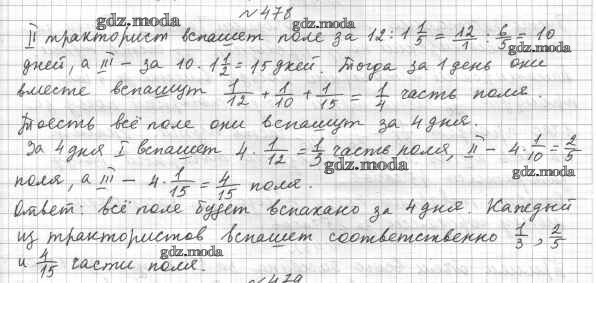 №478
gdz.moda
gdz.moda
II тракторист вспашет поле за 12 : 1 1/5 = 12/1 : 6/5 = 10
gdz.moda
дней, а III – за 10 · 1 1/2 = 15 дней. Тогда за 1 день они
вместе вспашут 1/12 + 1/10 + 1/15 = 1/4 часть поля.
Тоесть всё поле они вспашут за 4 дня.
За 4 дня I вспашет 4 · 1/12 = 1/3 часть поля, II – 4 · 1/10 = 2/5
gdz.moda
gdz.moda
поля, а III – 4 · 1/15 = 4/15 поля.
Ответ: всё поле будет вспахано за 4 дня. Каждый
из трактористов вспашет соответственно 1/3, 2/5
gdz.moda
и 4/15 части поля.
№479